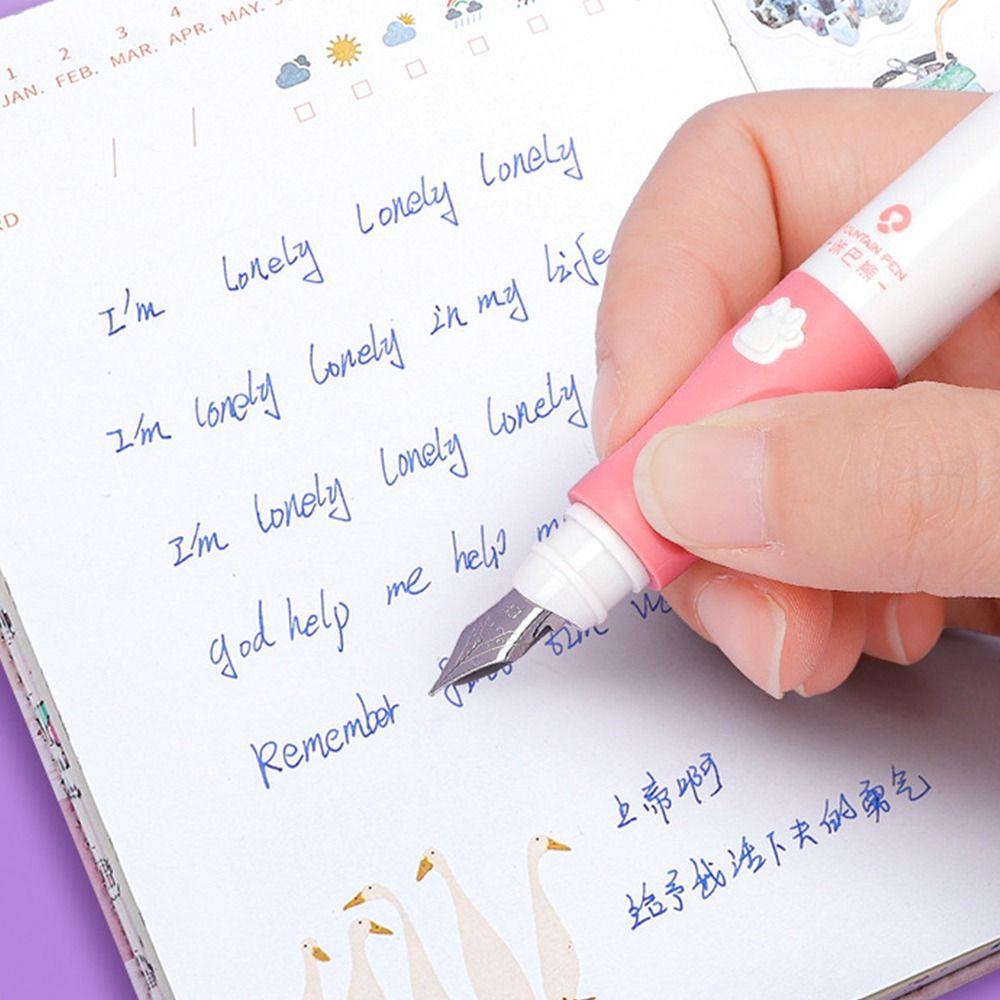 1 2 3 4
JAN. FEB. MAR. APR. MAY.
I'm lonely lonely lonely
I'm lonely lonely in my life
I'm lonely lonely lonely
god help me help
Remember
上帝啊
给予我活下去的勇气
FOUNTAIN PEN
巴熊